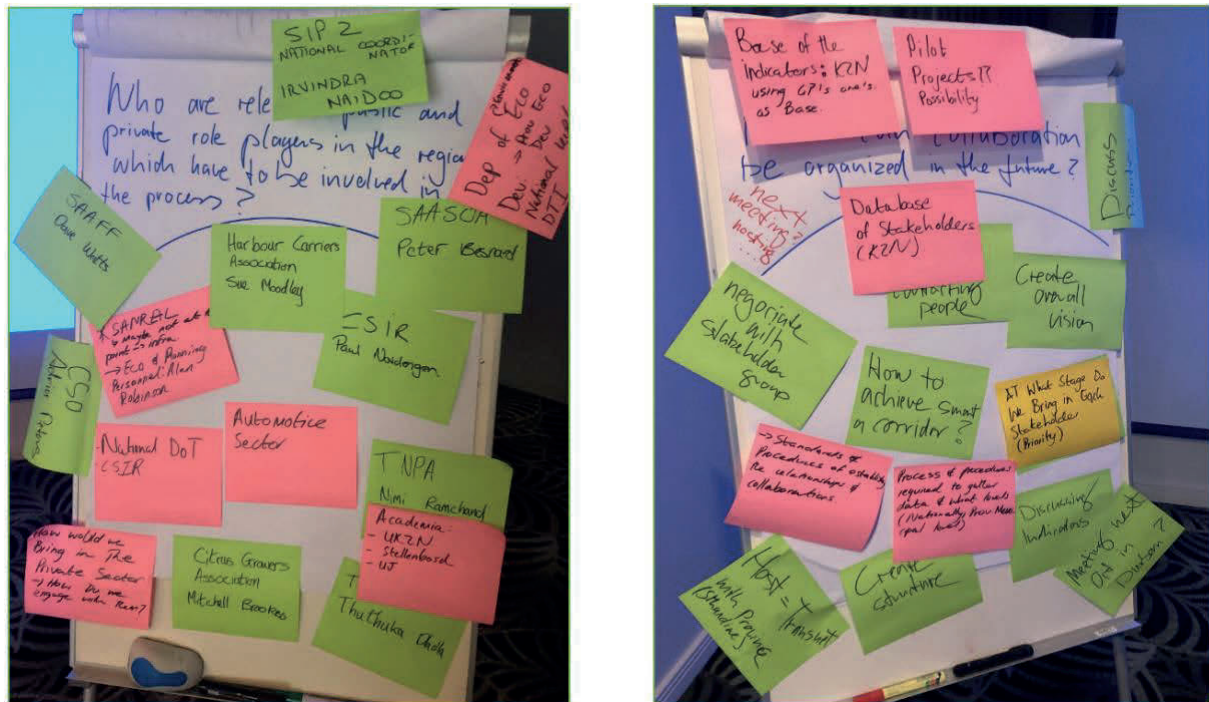 SIP 2
NATIONAL COORDI-
NATOR
IRVINDRA
NAIDOO
Who are rele public and
private role players in the regio
which have to be involved in
the process?
Dep of Eco
Dev. → How Eco
Dev
National
DTI
SAAFF
Dave Watts
Harbour Carriers
Association
Sue Moodley
SAASOA
Peter Besnard
SANRAL
Maybe not at
point → infra
→ Eco & Planning
Personnel: Alan
Robinson
CSIR
Paul
CSO
National DoT
CSIR
Automotice
Sector
TNPA
Nimi Ramchand
Academia:
- UKZN
- Stellenbord
- UJ
How would we
Bring in The
Private Sector
→ How Do we
engage with them?
Citrus Growers
Association
Mitchell Brookes
T
Thuthuka
Base of the
indicators: KZN
using GP's one's.
as Base.
Pilot
Projects??
Possibility
collaboration
be organized in the future?
Discuss
next
meeting?
hosting
...
Database
of Stakeholders
(KZN)
contacting
people
Create
overall
vision
negociate
with
stakeholder
group
How to
achieve smart
a corridor?
AT What Stage Do
We Bring in Each
Stakeholder
(Priority)
→ Structures &
Procedures of establishing
the relationships &
collaborations
Process & procedures
required to gather
data & what levels
(Nationally, Prov Munici-
pal level)
Discussing
Indicators
Meeting next
Oct in
Durban?
Host = Transnet
with province
(standing)
Create
structure